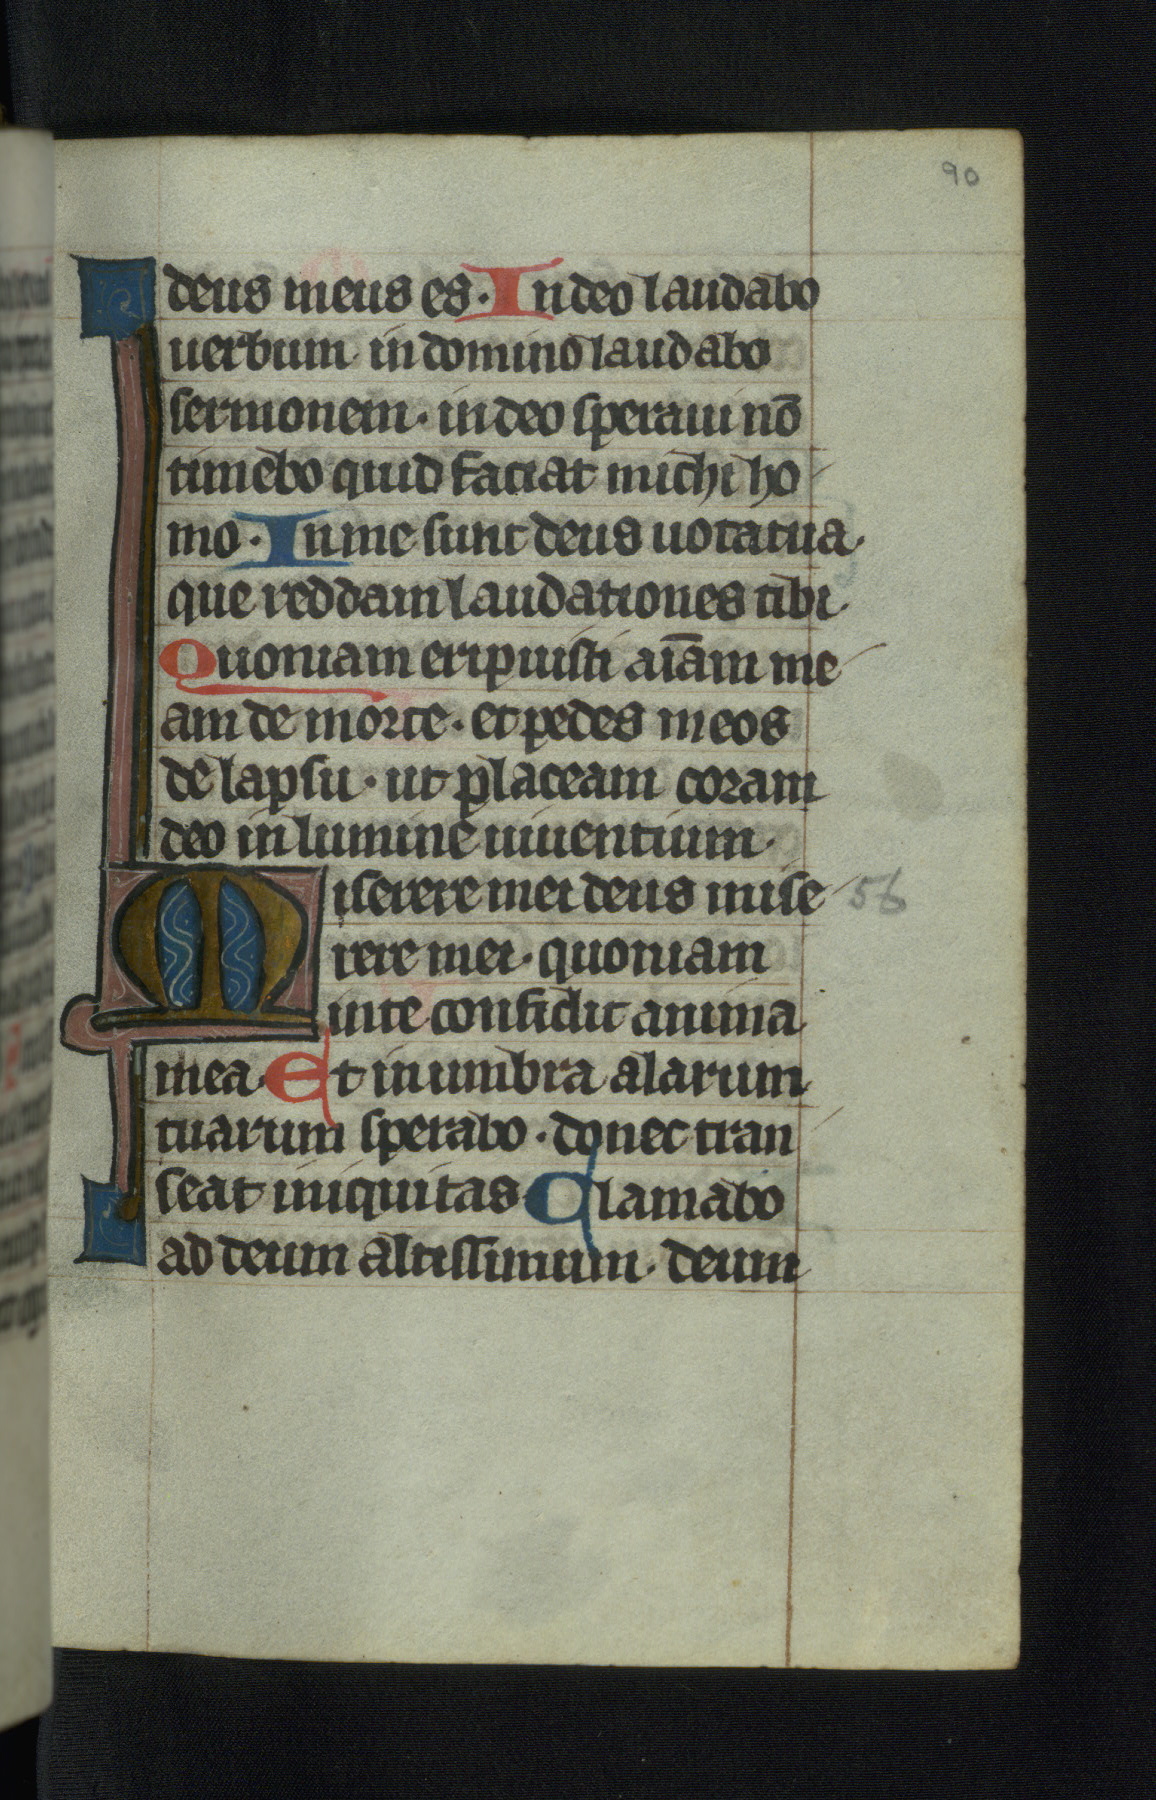 90
deus meus es. In deo laudabo
uerbum in domino laudabo
sermonem. in deo speraui nō
timebo quid faciat michi ho
mo. In me sunt deus uota tua.
que reddam laudationes tibi.
Quoniam eripuisti aīam me
am de morte. et pedes meos
de lapsu. ut placeam coram
deo in lumine uiuentium.
Miserere mei deus mise 56
rere mei. quoniam
in te confidit anima
mea. Et in umbra alarum
tuarum sperabo. donec tran
seat iniquitas Clamabo
ad deum altissimum. deum